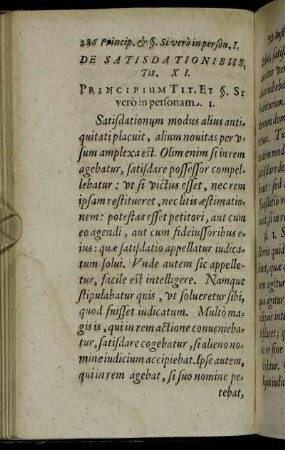 286 Princip. & §. Si verò in person. I.
DE SATISDATIONIBUS,
Tit. XI.
PRINCIPIUM TIT. ET §. SI
verò in personam. 1.
Satisdationum modus alius anti-
quitati placuit, alium nouitas per v-
sum amplexa est. Olim enim si in rem
agebatur, satisdare possessor compel-
lebatur: vt si victus esset, nec rem
ipsam restitueret, nec litis æstimatio-
nem: potestas esset petitori, aut cum
eo agendi, aut cum fideiussoribus e-
ius: quæ satisdatio appellatur iudica-
tum solui. Vnde autem sic appelle-
tur, facile est intelligere. Namque
stipulabatur quis, vt solueretur sibi,
quod fuisset iudicatum. Multò ma-
gis is, qui in rem actione conuenieba-
tur, satisdare cogebatur, si alieno no-
mine iudicium accipiebat. Ipse autem,
qui in rem agebat, si suo nomine pe-
tebat,